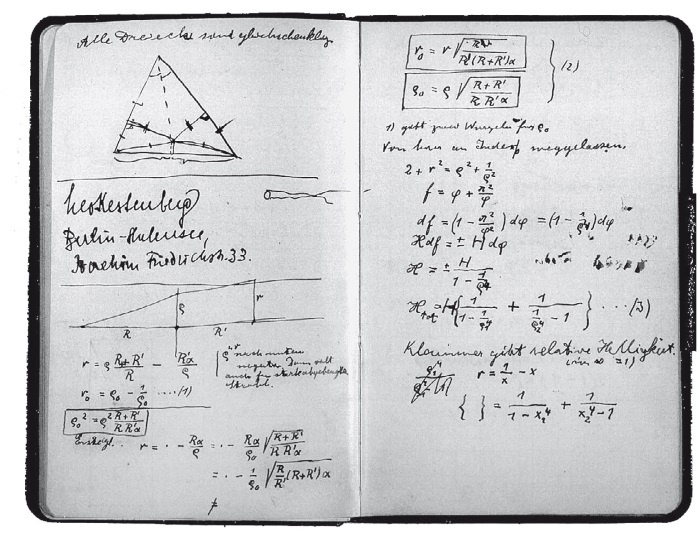 Alle Dreiecke sind gleichschenklig.
Leo Kestenberg
Berlin-Halensee,
Joachim Friedrichstr. 33.
ρ r
R R'
r = ρ (R+R')/R − R'α/ρ
ρ "+" nach unten
negativ. Dann gilt
auch für
Strahl.
r₀ = ρ₀ − 1/ρ₀ ....(1)
ρ₀² = ρ² (R+R')/(R R'α)
r = · − Rα/ρ = · − Rα/ρ₀ √((R+R')/(R R'α))
= · − 1/ρ₀ √(R/R' (R+R')α)
r₀ = r √(R/(R'(R+R')α))
ρ₀ = ρ √((R+R')/(R R'α))
} (2)
1) gibt zwei Wurzeln für ρ₀
Von hier an Index weggelassen.
2 + r² = ρ² + 1/ρ²
f = φ + π²/φ
df = (1 − π²/φ²) dφ = (1 − 1/ρ⁴) dφ
H df = ± H dφ
H = ± H/(1 − 1/ρ⁴)
H tot = H {1/(1 − 1/ρ₁⁴) + 1/(1/ρ₂⁴ − 1)} ···(3)
Klammer gibt relative Helligkeit.
(in ∞ = 1)
r = 1/x − x
{ } = 1/(1 − x₁⁴) + 1/(x₂⁴ − 1)